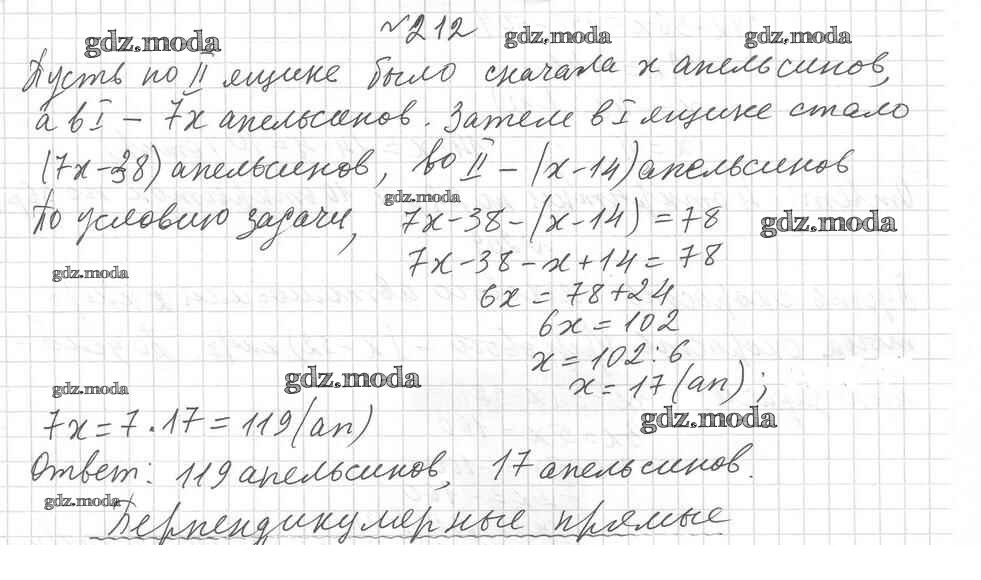 №212
gdz.moda gdz.moda gdz.moda
Пусть во II ящике было сначала x апельсинов,
а в I – 7x апельсинов. Затем в I ящике стало
(7x-38) апельсинов, во II – (x-14) апельсинов
gdz.moda
По условию задачи, 7x-38-(x-14)=78
gdz.moda
7x-38-x+14=78
gdz.moda
6x=78+24
6x=102
x=102:6
gdz.moda
x=17(ап);
gdz.moda
gdz.moda
7x=7·17=119(ап)
Ответ: 119 апельсинов, 17 апельсинов.
gdz.moda
Перпендикулярные прямые